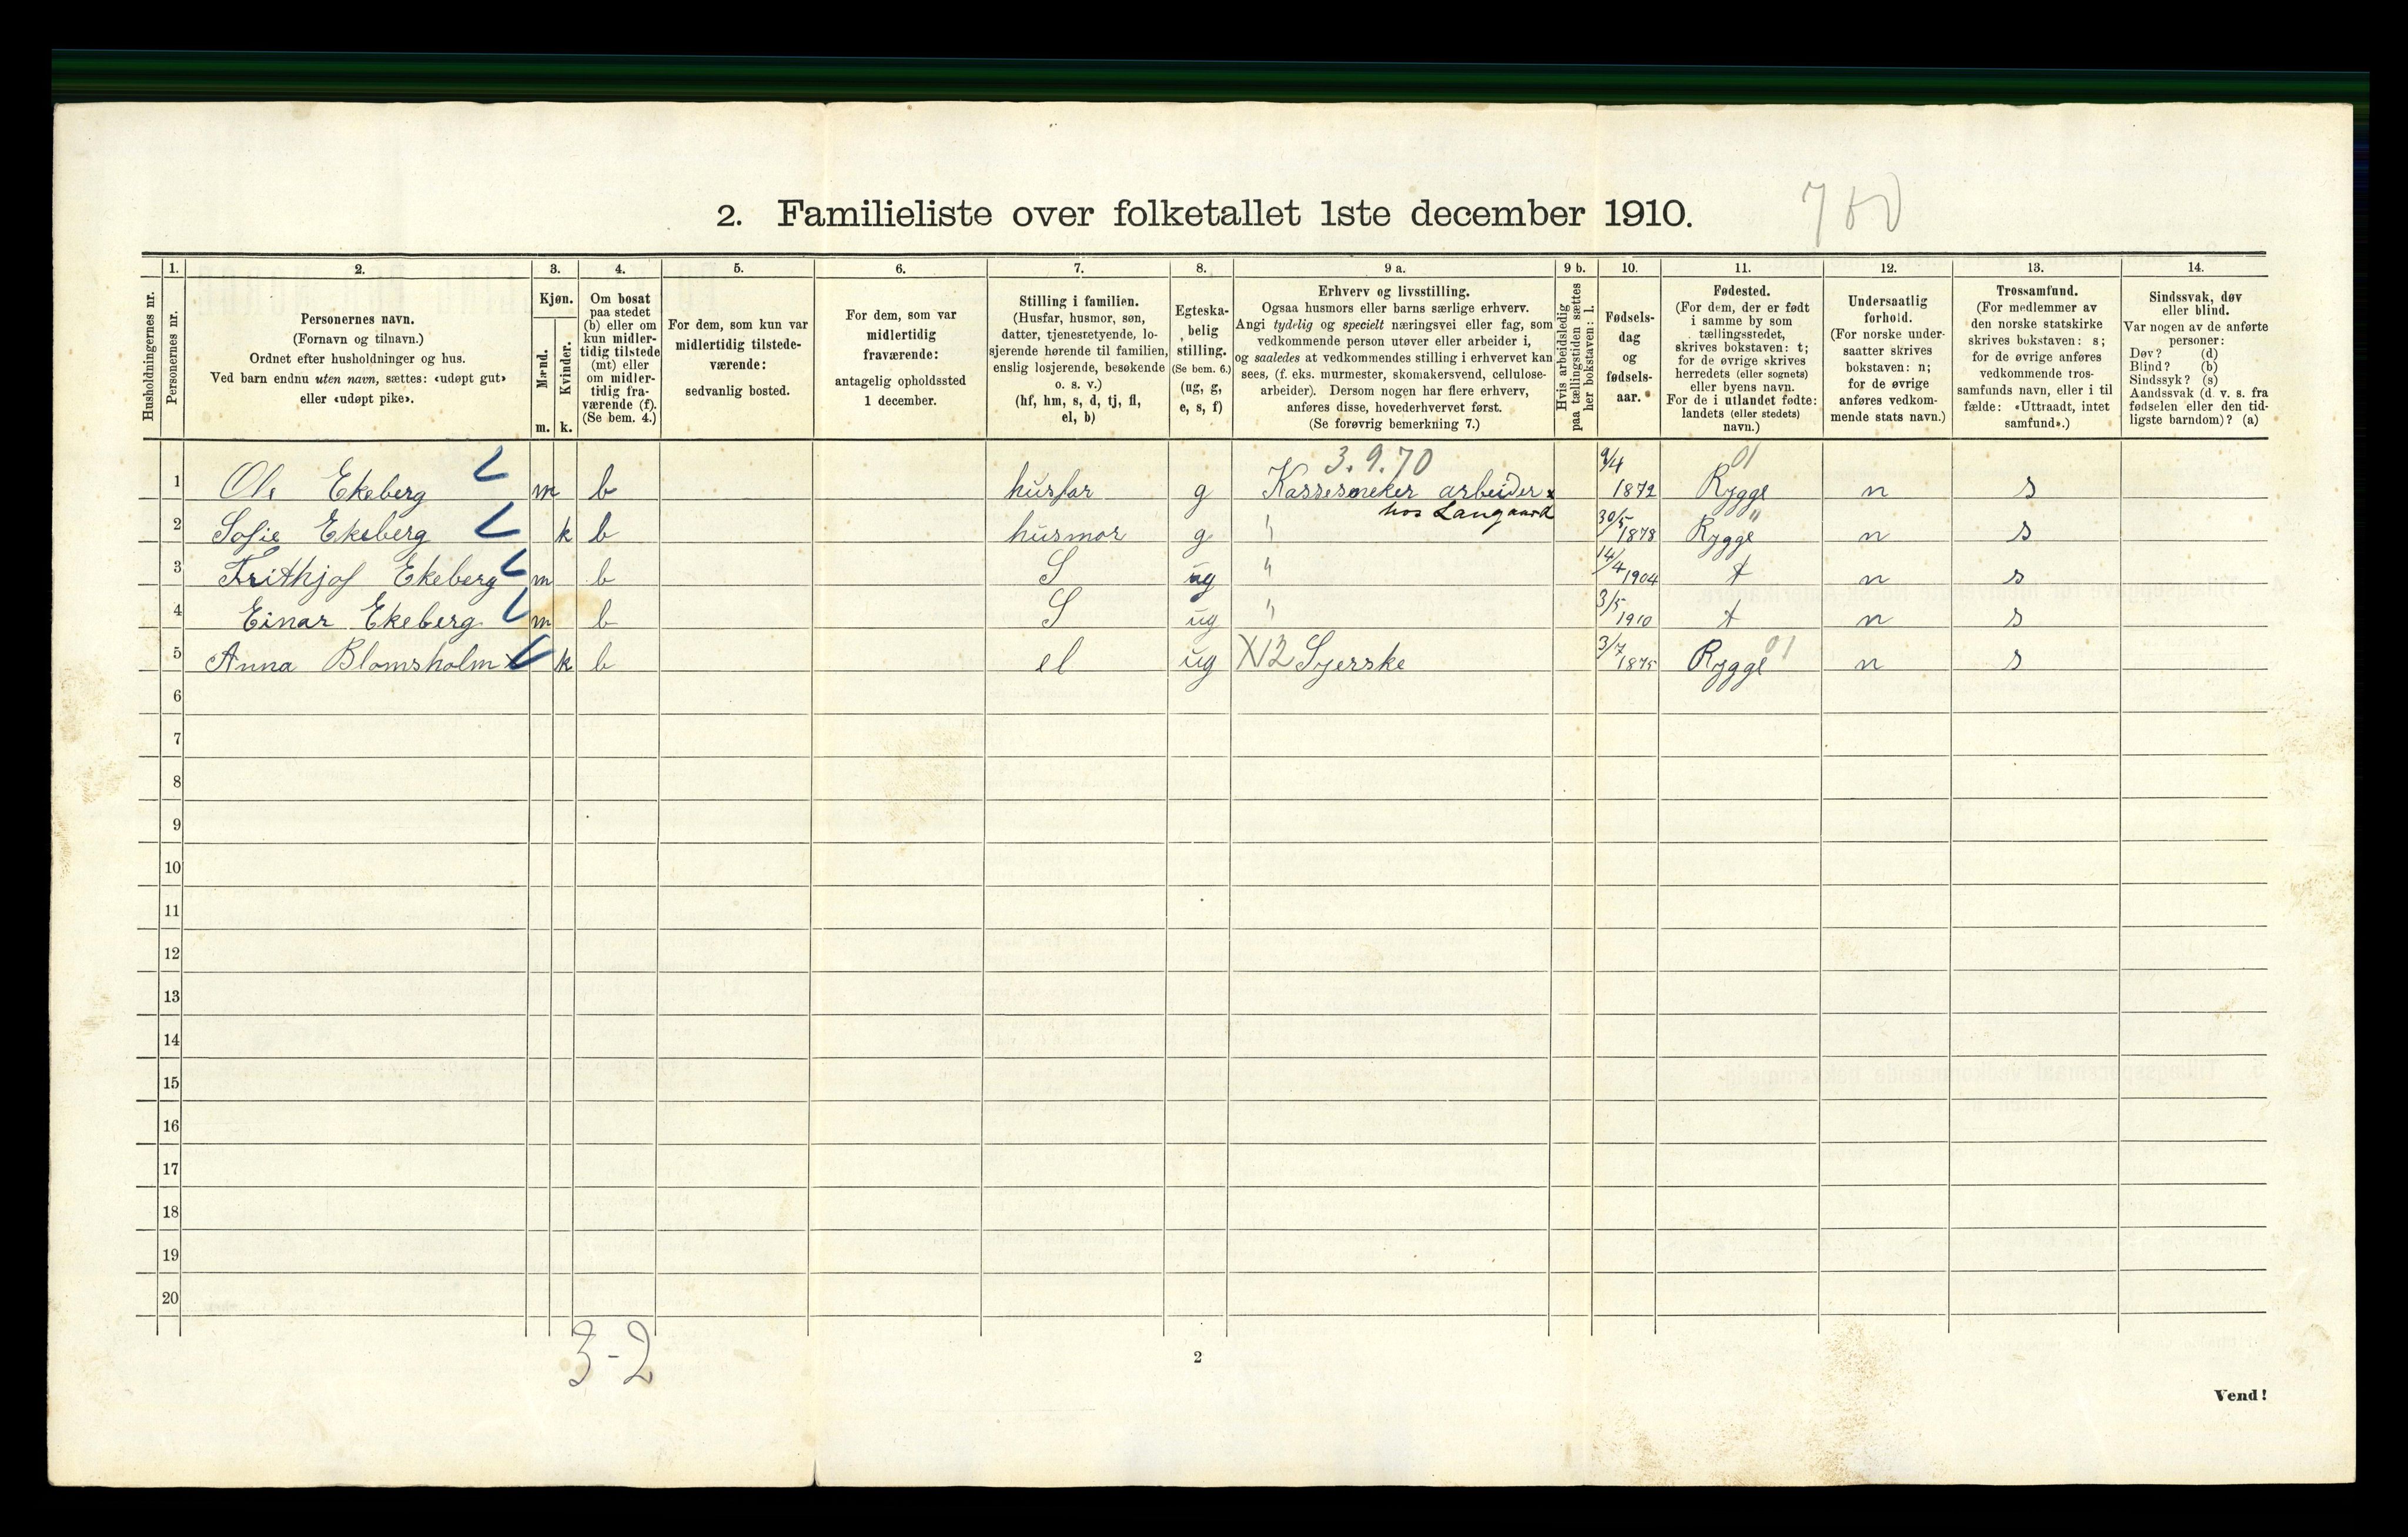 2. Familieliste over folketallet 1ste december 1910.
Husholdningernes nr.
1.
Personernes nr.
2.
Personernes navn.
(Fornavn og tilnavn.)
Ordnet efter husholdninger og hus.
Ved barn endnu uten navn, sættes: «udøpt gut»
eller «udøpt pike».
3.
Kjøn.
Mænd.
Kvinder.
m. k.
4.
Om bosat
paa stedet
(b) eller om
kun midler-
tidig tilstede
(mt) eller
om midler-
tidig fra-
værende (f).
(Se bem. 4.)
5.
For dem, som kun var
midlertidig tilstede-
værende:
sedvanlig bosted.
6.
For dem, som var
midlertidig
fraværende:
antagelig opholdssted
1 december.
7.
Stilling i familien.
(Husfar, husmor, søn,
datter, tjenestetyende, lo-
sjerende hørende til familien,
enslig losjerende, besøkende
o. s. v.)
(hf, hm, s, d, tj, fl,
el, b)
8.
Egteska-
belig
stilling.
(Se bem. 6.)
(ug, g,
e, s, f)
9 a.
Erhverv og livsstilling.
Ogsaa husmors eller barns særlige erhverv.
Angi tydelig og specielt næringsvei eller fag, som
vedkommende person utøver eller arbeider i,
og saaledes at vedkommendes stilling i erhvervet kan
sees, (f. eks. murmester, skomakersvend, cellulose-
arbeider). Dersom nogen har flere erhverv,
anføres disse, hovederhvervet først.
(Se forøvrig bemerkning 7.)
9 b.
Hvis arbeidsledig
paa tællingstiden sættes
her bokstaven: l.
10.
Fødsels-
dag
og
fødsels-
aar.
11.
Fødested.
(For dem, der er født
i samme by som
tællingsstedet,
skrives bokstaven: t;
for de øvrige skrives
herredets (eller sognets)
eller byens navn.
For de i utlandet fødte:
landets (eller stedets)
navn.)
12.
Undersaatlig
forhold.
(For norske under-
saatter skrives
bokstaven: n;
for de øvrige
anføres vedkom-
mende stats navn.)
13.
Trossamfund.
(For medlemmer av
den norske statskirke
skrives bokstaven: s;
for de øvrige anføres
vedkommende tros-
samfunds navn, eller i til
fælde: «Uttraadt, intet
samfund».)
14.
Sindssvak, døv
eller blind.
Var nogen av de anførte
personer:
Døv? (d)
Blind? (b)
Sindssyk? (s)
Aandssvak (d. v. s. fra
fødselen eller den tid-
ligste barndom)? (a)
3.9.70 01
1 Ole Ekeberg m b husfar g Kassesmeker arbeider x 9/4 1872 Rygge n s
hos Langaard
2 Sofie Ekeberg k b husmor g " 30/5 1878 Rygge " n s
3 Frithjof Ekeberg m b S ug " 14/4 1904 t n s
4 Einar Ekeberg m b S ug " 3/5 1910 t n s
5 Anna Blomsholm x k b el ug X12 Syerske 3/7 1875 Rygge 01 n s
6
7
8
9
10
11
12
13
14
15
16
17
18
19
20
3-2
2
Vend!